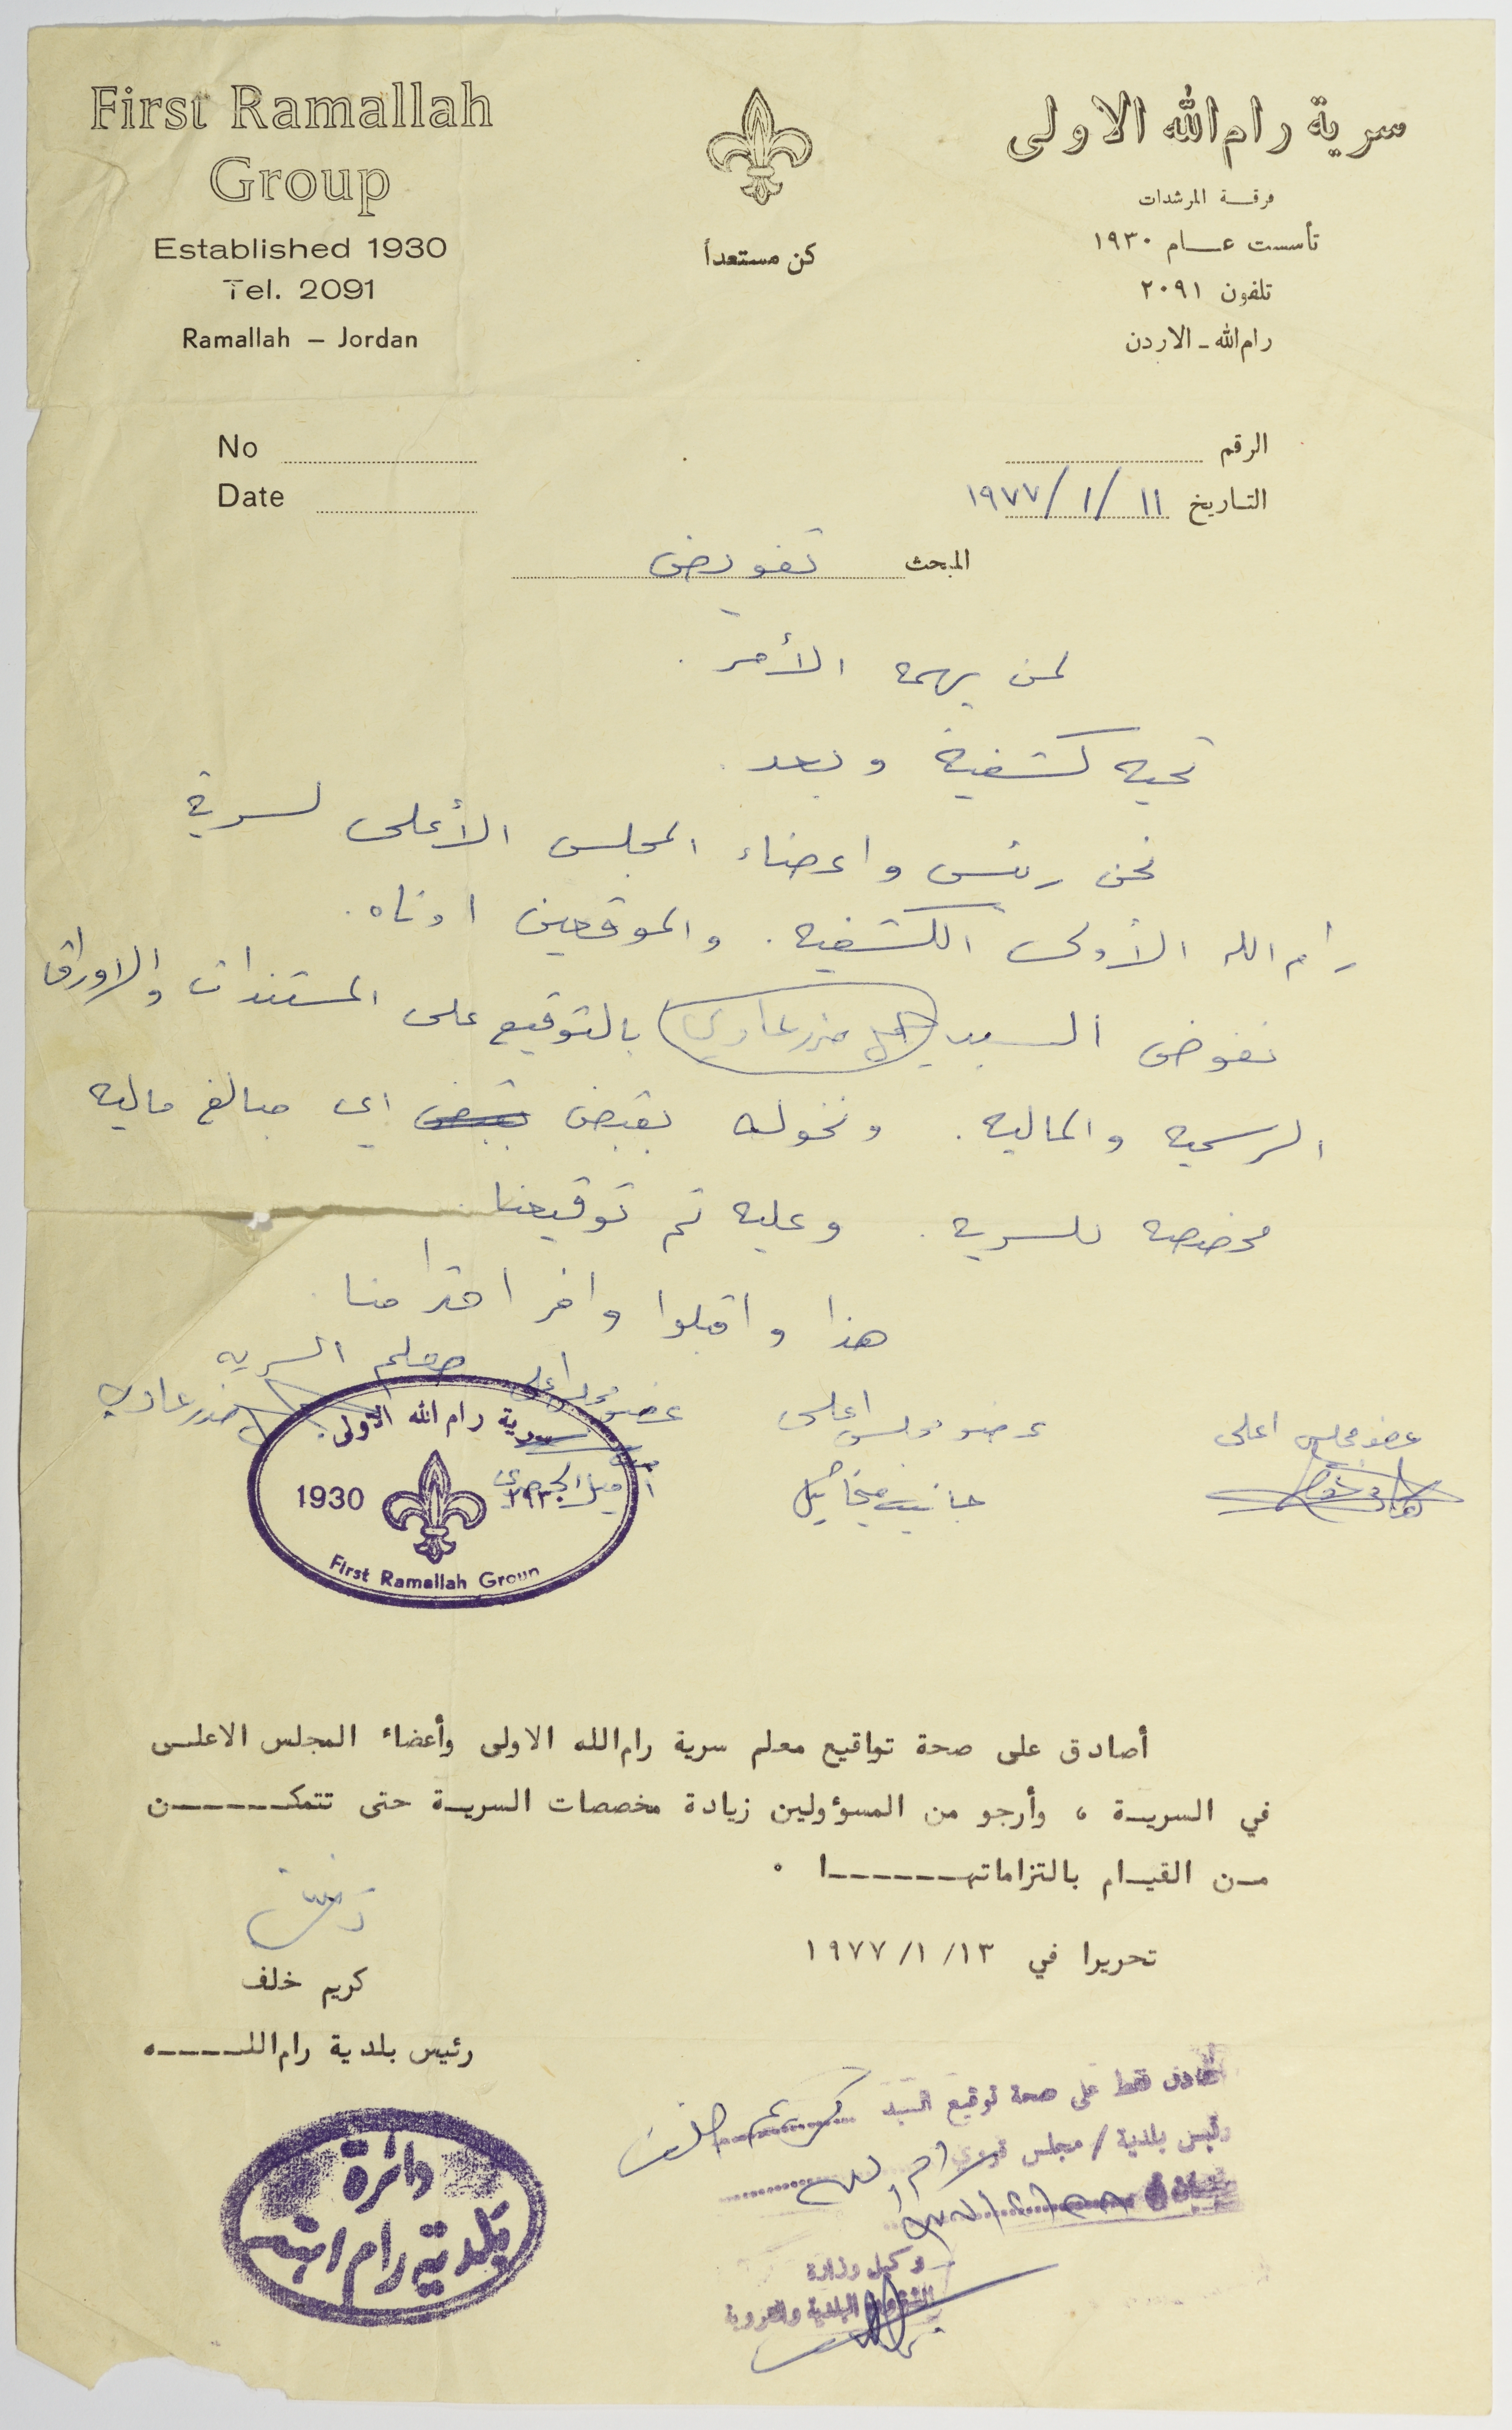 First Ramallah
Group
Established 1930
Tel. 2091
Ramallah – Jordan
كن مستعداً
سرية رام الله الاولى
فرقة المرشدات
تأسست عام ١٩٣٠
تلفون ٢٠٩١
رام الله - الاردن
No
Date
الرقم
التاريخ ١١ /١/ ١٩٧٧
المبحث تفويض
لمن يهمه الأمر .
تحيه كشفية وبعد .
نحن رئيس واعضاء المجلس الأعلى لسرية
رام الله الأولى الكشفيه . والموقعين ادناه .
نفوض السيد بالتوقيع على المستندات والاوراق
الرسميه والماليه . ونخوله بقبض اي مبالغ ماليه
مخصصه للسريه . وعليه تم توقيعنا .
هذا واقبلوا وافر احترامنا .
عضو مجلس اعلى
عضو مجلس اعلى
جانيت ميخائيل
عضو مجلس اعلى
معلم السريه
سرية رام الله الاولى
1930 ١٩٣٠
First Ramallah Group
أصادق على صحة تواقيع معلم سرية رام الله الاولى وأعضاء المجلس الاعلى
في السرية ، وأرجو من المسؤولين زيادة مخصصات السرية حتى تتمكن
من القيام بالتزاماتها ٠
تحريرا في ١٣ /١/ ١٩٧٧
كريم خلف
رئيس بلدية رام الله
دائرة
بلدية رام الله
أصادق فقط على صحة توقيع السيد كريم خلف
رئيس بلدية / مجلس قروي رام الله
وكيل وزارة
الشؤون البلدية والقروية